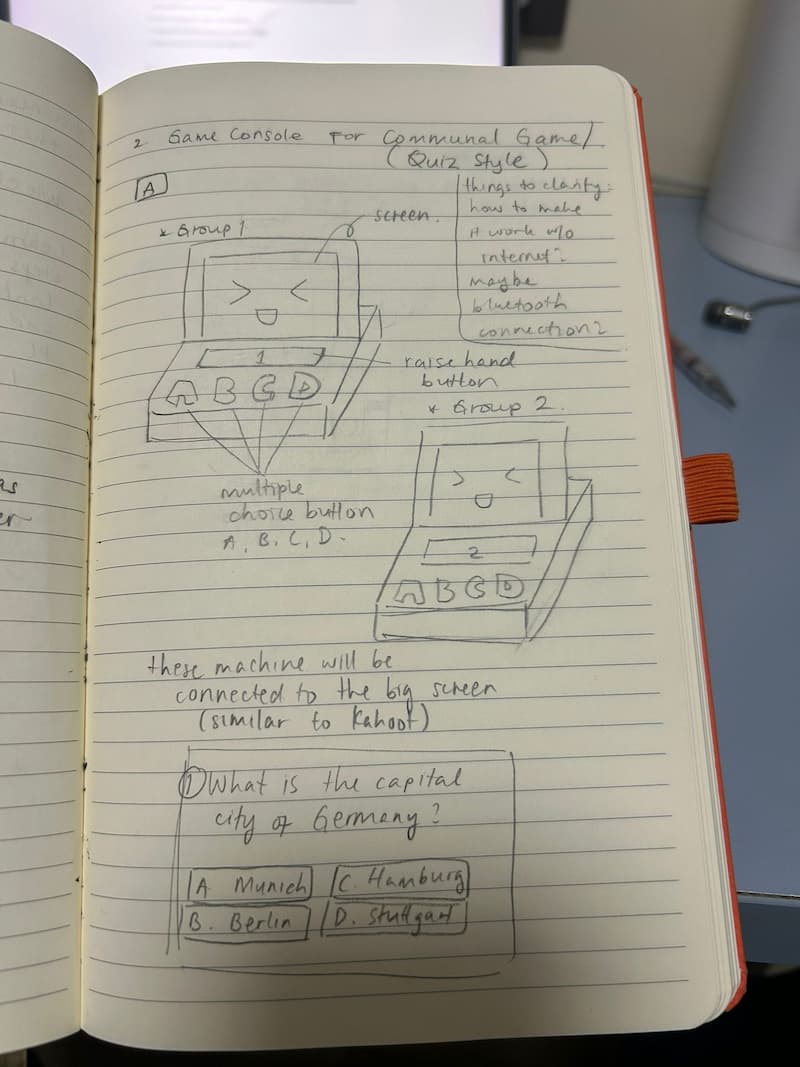 2. Game Console For Communal Game/
(Quiz Style)
A
things to clarify:
how to make
it work w/o
internet?
maybe
bluetooth
connection?
* Group 1
screen.
1
raise hand
button
A B C D
multiple
choice button
A, B, C, D.
* Group 2.
2
A B C D
these machine will be
connected to the big screen
(similar to Kahoot)
1 What is the capital
city of Germany?
A. Munich
C. Hamburg
B. Berlin
D. Stuttgart
as